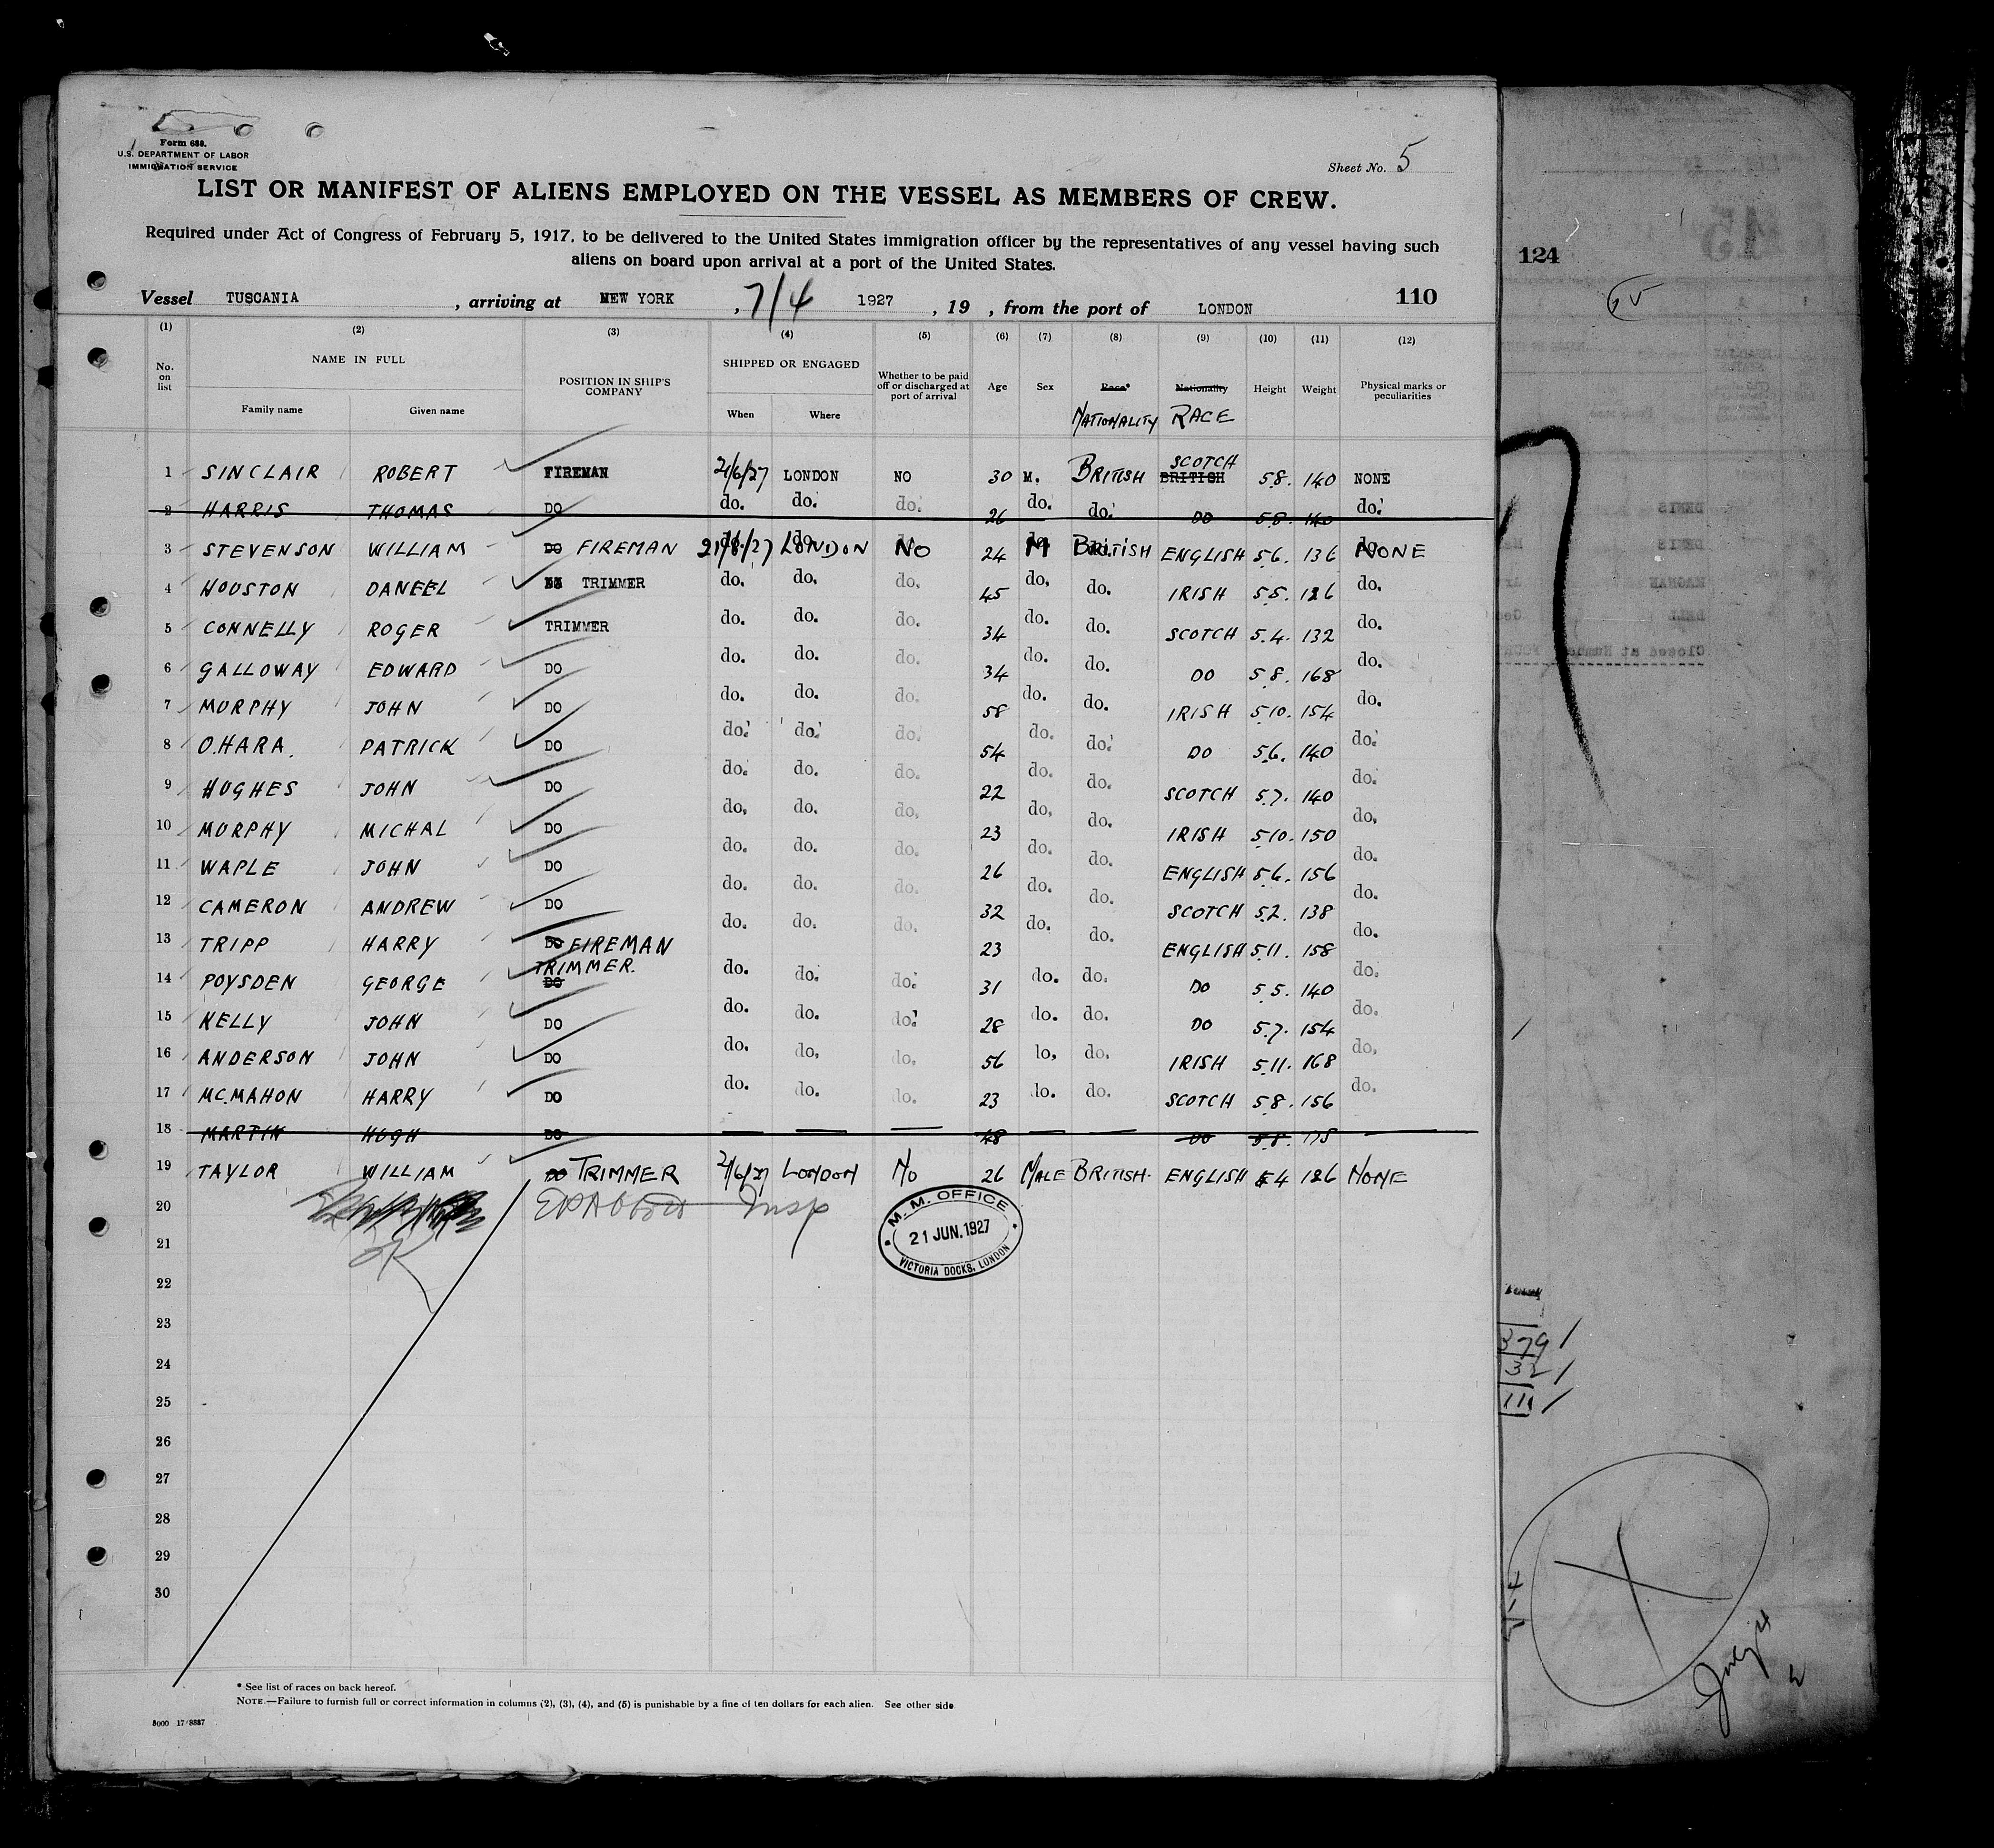 Form 680.
U.S. DEPARTMENT OF LABOR
IMMIGRATION SERVICE
Sheet No. 5
LIST OR MANIFEST OF ALIENS EMPLOYED ON THE VESSEL AS MEMBERS OF CREW.
Required under Act of Congress of February 5, 1917, to be delivered to the United States immigration officer by the representatives of any vessel having such
aliens on board upon arrival at a port of the United States.
124
Vessel TUSCANIA , arriving at NEW YORK , 7/4 1927 , 19 , from the port of LONDON 110
(1) (2) (3) (4) (5) (6) (7) (8) (9) (10) (11) (12)
No. on list NAME IN FULL POSITION IN SHIP'S COMPANY SHIPPED OR ENGAGED Whether to be paid off or discharged at port of arrival Age Sex Race* Nationality Height Weight Physical marks or peculiarities
Family name Given name When Where NATIONALITY RACE
SCOTCH
1 SINCLAIR ROBERT FIREMAN 21/6/27 LONDON NO 30 M. BRITISH BRITISH 5.8. 140 NONE
2 HARRIS THOMAS DO do. do. do. 26 do. do. DO 5.8. 140 do.
3 STEVENSON WILLIAM DO FIREMAN 21/6/27 LONDON NO 24 M BRITISH ENGLISH 5.6. 136 NONE
4 HOUSTON DANEEL TRIMMER do. do. do. 45 do. do. IRISH 5.5. 126 do.
5 CONNELLY ROGER TRIMMER do. do. do. 34 do. do. SCOTCH 5.4. 132 do.
6 GALLOWAY EDWARD DO do. do. do. 34 do. do. DO 5.8. 168 do.
7 MURPHY JOHN DO do. do. do. 58 do. do. IRISH 5.10. 154 do.
8 O.HARA. PATRICK DO do. do. do. 54 do. do. DO 5.6. 140 do.
9 HUGHES JOHN DO do. do. do. 22 do. do. SCOTCH 5.7. 140 do.
10 MURPHY MICHAL DO do. do. do. 23 do. do. IRISH 5.10. 150 do.
11 WAPLE JOHN DO do. do. do. 26 do. do. ENGLISH 5.6. 156 do.
12 CAMERON ANDREW DO do. do. do. 32 do. do. SCOTCH 5.2. 138 do.
13 TRIPP HARRY DO FIREMAN do. do. do. 23 do. do. ENGLISH 5.11. 158 do.
TRIMMER.
14 POYSDEN GEORGE DO do. do. do. 31 do. do. DO 5.5. 140 do.
15 KELLY JOHN DO do. do. do. 28 do. do. DO 5.7. 154 do.
16 ANDERSON JOHN DO do. do. do. 56 do. do. IRISH 5.11. 168 do.
17 MC.MAHON HARRY DO do. do. do. 23 do. do. SCOTCH 5.8. 156 do.
18 MARTIN HUGH DO 48 DO 5.8. 175
19 TAYLOR WILLIAM DO TRIMMER 21/6/27 LONDON NO 26 MALE BRITISH. ENGLISH 5.4 126 NONE
20 Insp
M. M. OFFICE
21 JUN. 1927
VICTORIA DOCKS, LONDON
21 OK
22
23
24
25
26
27
28
29
30
* See list of races on back hereof.
NOTE.—Failure to furnish full or correct information in columns (2), (3), (4), and (5) is punishable by a fine of ten dollars for each alien. See other side.
8000 17/8387
379 /
32 /
111 /
X
July 4